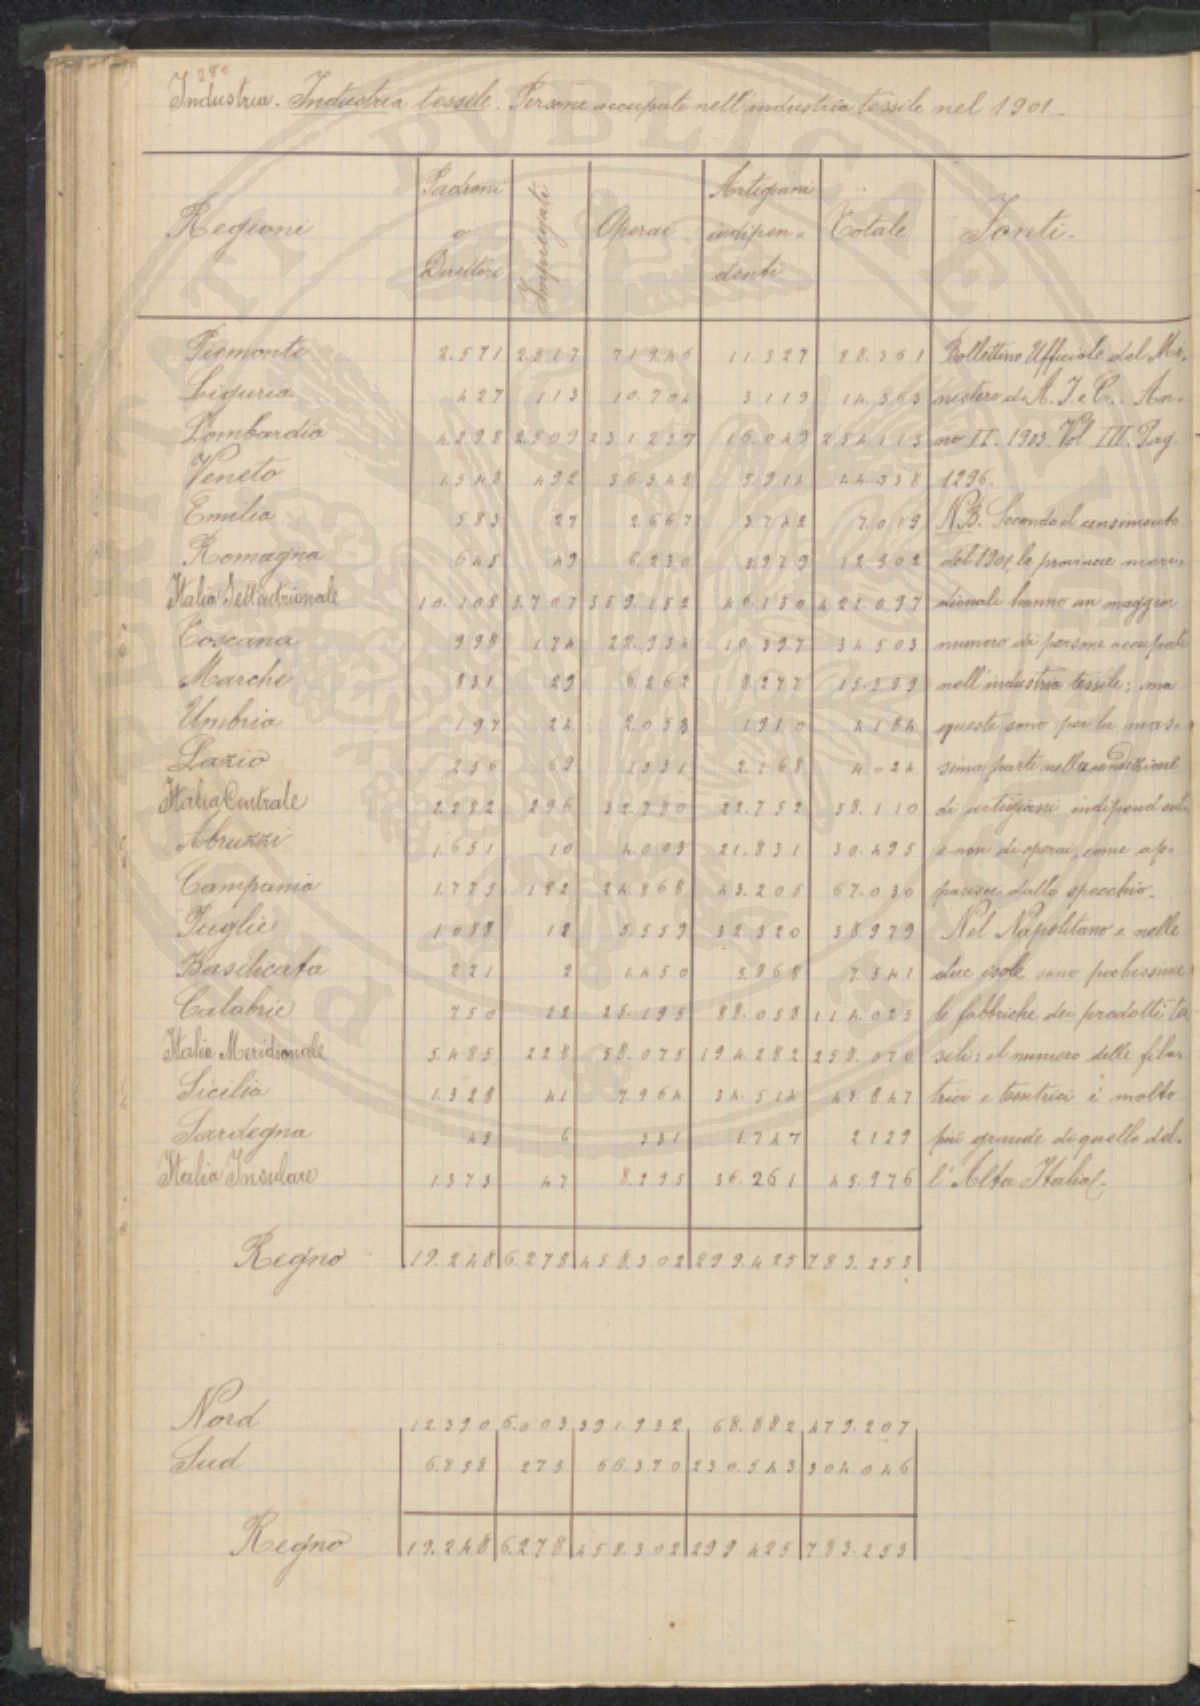 280
Industria. Industria tessile. Persone occupate nell'industria tessile nel 1901.
Regioni Padroni o Direttori Impiegati Operai Artigiani indipendenti Totale Fonti.
Piemonte 2.571 2.517 71.946 11.327 88.361
Liguria 427 113 10.704 3.119 14.363
Lombardia 4298 2.509 231.237 16.049 254113
Veneto 1.548 492 36.348 5.914 44.338
Emilia 583 27 2.667 3.742 7.019
Romagna 645 49 6.230 5979 12.902
Italia Settentrionale 10.108 5.707 359.152 46.130 421.097
Toscana 998 174 22.934 10.397 34.503
Marche 831 29 6.262 8.277 15.399
Umbria 197 24 2.053 1.910 4.184
Lazio 256 69 1.531 2.168 4.024
Italia Centrale 2.282 296 32.780 22.752 58.110
Abruzzi 1.651 10 4.003 21.831 30.495
Campania 1.775 182 24.868 43.205 67.030
Puglie 1.088 12 5.559 32.320 38.979
Basilicata 221 2 1.450 5.868 7.541
Calabrie 750 22 25.195 88.058 114.025
Italia Meridionale 5.485 228 58.075 194.282 258.070
Sicilia 1.328 41 7.964 34.514 43.847
Sardegna 45 6 331 1.747 2.129
Italia Insulare 1.373 47 8.295 36.261 45.976
Regno 19.248 6.278 458.302 299.425 783.253
Bollettino Ufficiale del Mi-
nistero di A. I. e C. An-
no II. 1903. Vol III. Pag.
1296.
NB. Secondo il censimento
del 1901, le provincie meri-
dionali hanno un maggior
numero di persone occupate
nell'industria tessile; ma
queste sono per la mas-
sima parte nella condizione
di artigiani indipendenti
e non di operai, come ap-
parisce dallo specchio.
Nel Napolitano e nelle
due isole sono pochissime
le fabbriche dei prodotti tes
sili; il numero delle fila-
trici e tessitrici è molto
più grande di quello del-
l'Alta Italia.
Nord 12.390 6.003 391.932 68.882 479.207
Sud 6.858 275 66.370 230.543 304.046
Regno 19.248 6.278 458.302 299.425 783.253